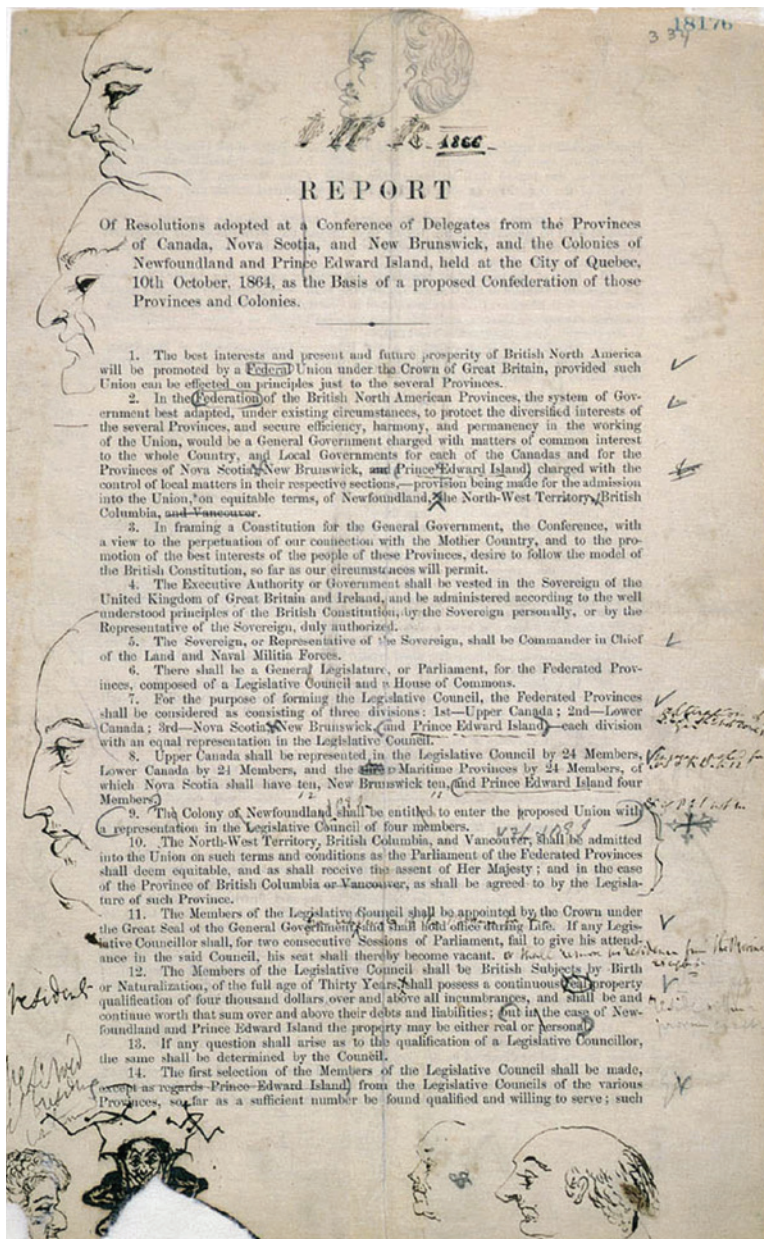 18176
334
1866
REPORT
Of Resolutions adopted at a Conference of Delegates from the Provinces
of Canada, Nova Scotia, and New Brunswick, and the Colonies of
Newfoundland and Prince Edward Island, held at the City of Quebec,
10th October, 1864, as the Basis of a proposed Confederation of those
Provinces and Colonies.
1. The best interests and present and future prosperity of British North America
will be promoted by a Federal Union under the Crown of Great Britain, provided such
Union can be effected on principles just to the several Provinces.
2. In the Federation of the British North American Provinces, the system of Gov-
ernment best adapted, under existing circumstances, to protect the diversified interests of
the several Provinces, and secure efficiency, harmony, and permanency in the working
of the Union, would be a General Government charged with matters of common interest
to the whole Country, and Local Governments for each of the Canadas and for the
Provinces of Nova Scotia, New Brunswick, and Prince Edward Island, charged with the
control of local matters in their respective sections,—provision being made for the admission
into the Union, on equitable terms, of Newfoundland, the North-West Territory, British
Columbia, and Vancouver.
3. In framing a Constitution for the General Government, the Conference, with
a view to the perpetuation of our connection with the Mother Country, and to the pro-
motion of the best interests of the people of these Provinces, desire to follow the model of
the British Constitution, so far as our circumstances will permit.
4. The Executive Authority or Government shall be vested in the Sovereign of the
United Kingdom of Great Britain and Ireland, and be administered according to the well
understood principles of the British Constitution, by the Sovereign personally, or by the
Representative of the Sovereign, duly authorized.
5. The Sovereign, or Representative of the Sovereign, shall be Commander in Chief
of the Land and Naval Militia Forces.
6. There shall be a General Legislature, or Parliament, for the Federated Prov-
inces, composed of a Legislative Council and a House of Commons.
7. For the purpose of forming the Legislative Council, the Federated Provinces
shall be considered as consisting of three divisions: 1st—Upper Canada; 2nd—Lower
Canada; 3rd—Nova Scotia, New Brunswick and Prince Edward Island,—each division
with an equal representation in the Legislative Council.
8. Upper Canada shall be represented in the Legislative Council by 24 Members,
Lower Canada by 24 Members, and the Maritime Provinces by 24 Members, of
which Nova Scotia shall have ten, New Brunswick ten, and Prince Edward Island four
Members.
9. The Colony of Newfoundland shall be entitled to enter the proposed Union with
a representation in the Legislative Council of four members.
10. The North-West Territory, British Columbia, and Vancouver, shall be admitted
into the Union on such terms and conditions as the Parliament of the Federated Provinces
shall deem equitable, and as shall receive the assent of Her Majesty; and in the case
of the Province of British Columbia or Vancouver, as shall be agreed to by the Legisla-
ture of such Province.
11. The Members of the Legislative Council shall be appointed by the Crown under
the Great Seal of the General Government, and shall hold office during Life. If any Legis-
lative Councillor shall, for two consecutive Sessions of Parliament, fail to give his attend-
ance in the said Council, his seat shall thereby become vacant.
12. The Members of the Legislative Council shall be British Subjects by Birth
or Naturalization, of the full age of Thirty Years, shall possess a continuous real property
qualification of four thousand dollars over and above all incumbrances, and shall be and
continue worth that sum over and above their debts and liabilities; but in the case of New-
foundland and Prince Edward Island the property may be either real or personal.
resident
13. If any question shall arise as to the qualification of a Legislative Councillor,
the same shall be determined by the Council.
14. The first selection of the Members of the Legislative Council shall be made,
except as regards Prince Edward Island, from the Legislative Councils of the various
Provinces, so far as a sufficient number be found qualified and willing to serve; such